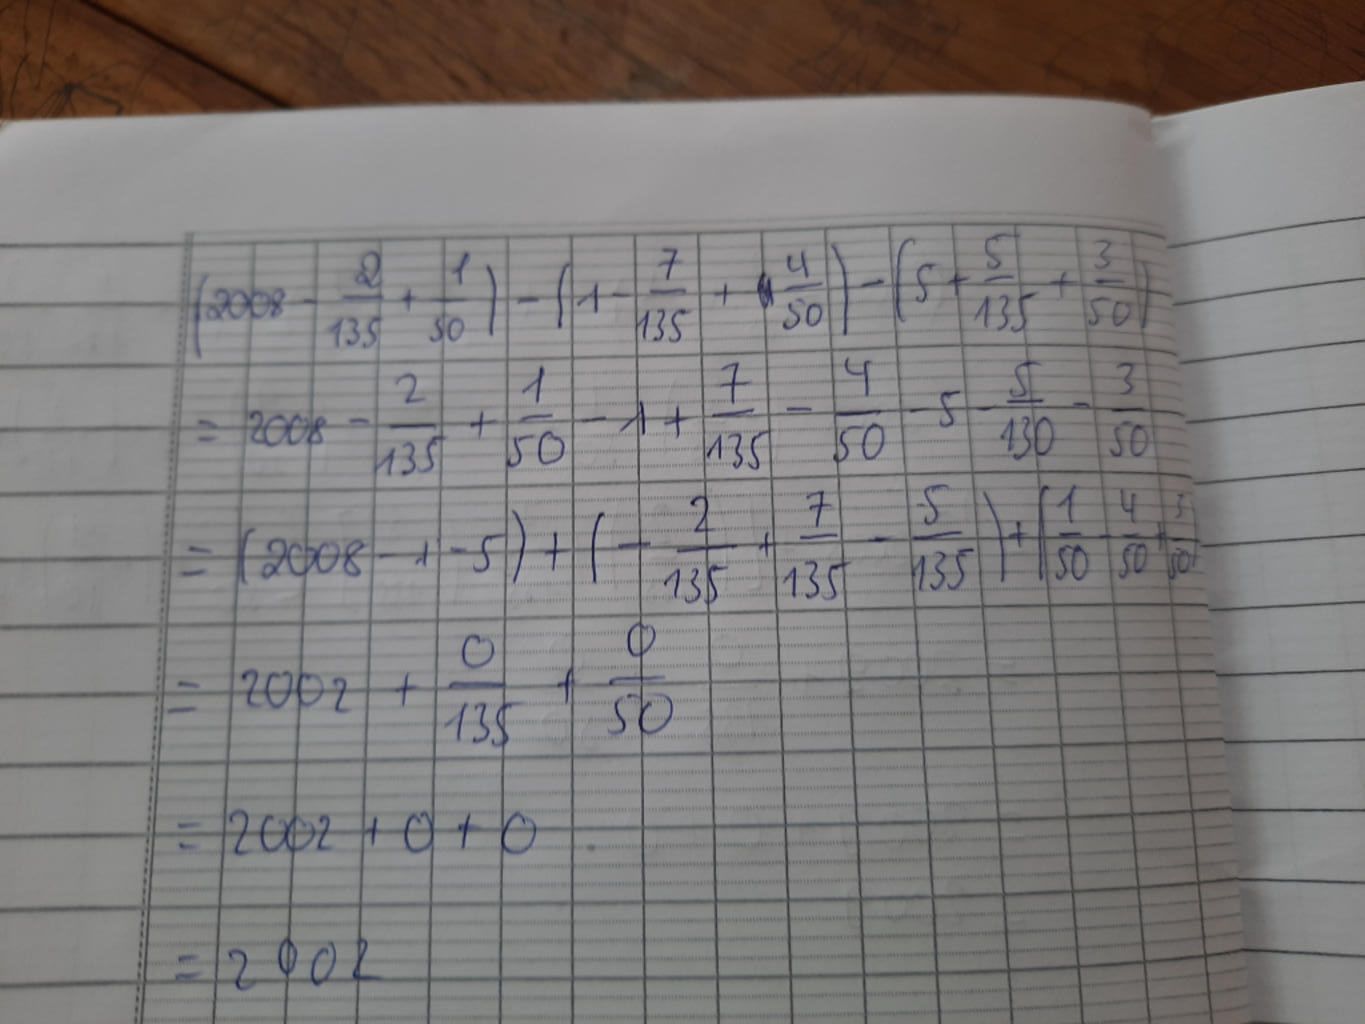 (2008 - 2/135 + 1/50) - (1 - 7/135 + 4/50) - (5 + 5/135 + 3/50)
= 2008 - 2/135 + 1/50 - 1 + 7/135 - 4/50 - 5 - 5/130 - 3/50
= (2008 - 1 - 5) + (- 2/135 + 7/135 - 5/135) + (1/50 - 4/50 + 3/50
= 2002 + 0/135 + 0/50
= 2002 + 0 + 0
= 2002